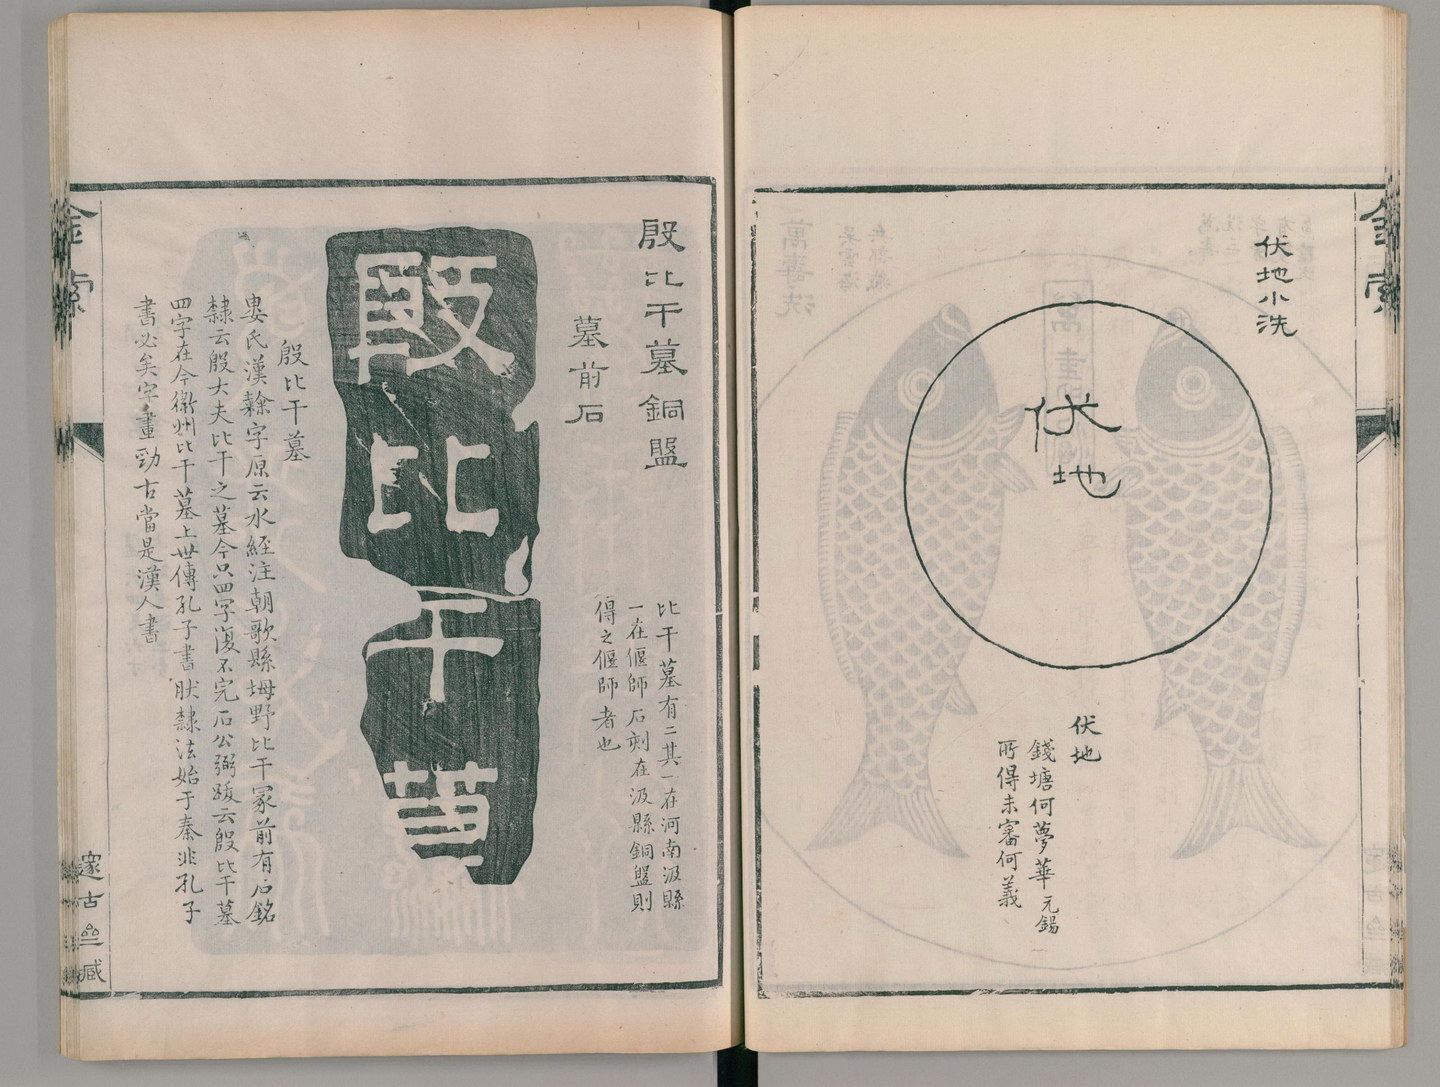 伏地小洗
伏地
伏地
錢塘何夢華元錫
所得未審何義
殷比干墓銅盤
墓前石
比干墓有二其一在河南汲縣
一在偃師石刻在汲縣銅盤則
得之偃師者也
殷比干墓
殷比干墓
婁氏漢隸字原云水経注朝歌縣坶野比干冢前有石銘
隸云殷大夫比干之墓今只四字復不完石公弼跋云殷比干墓
四字在今衞州比干墓上世傳孔子書肰隸法始于秦非孔子
書必矣字畫勁古當是漢人書
金索
邃古亝臧